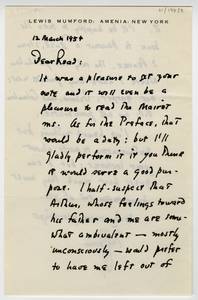 LEWIS MUMFORD: AMENIA: NEW YORK
12 March 1954
Dear Read:
It was a pleasure to get your
note and it will even be a
pleasure to read the Mairet
ms. As for the Preface, that
would be a duty; but I'll
gladly perform it if you think
it would serve a good pur-
pose. I half-suspect that
Arthur, whose feelings toward
his father and me are some-
what ambivalent — mostly
unconsciously — would prefer
to have me left out of